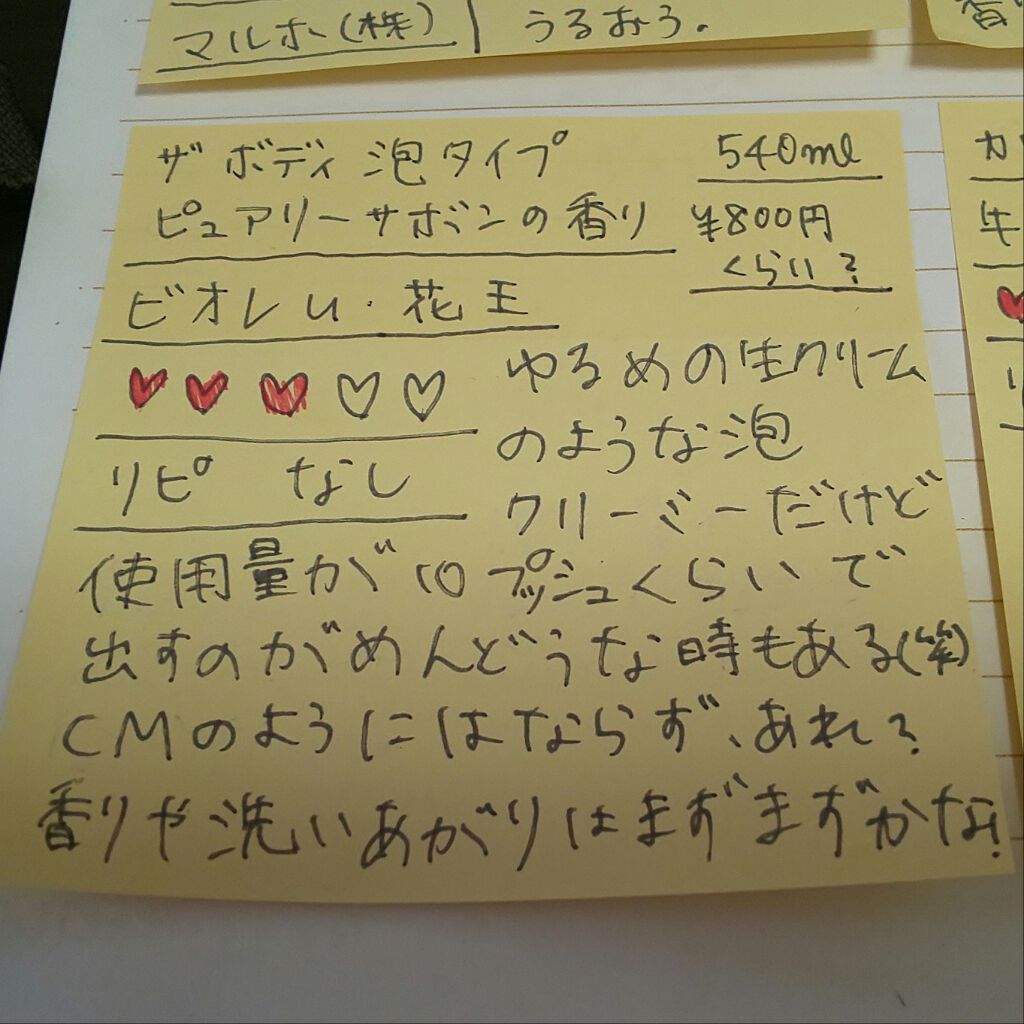 マルホ(株)
うるおう.
香
ザ ボディ 泡タイプ
ピュアリーサボンの香り
540ml
¥800円
くらい?
ビオレu・花王
リピ なし
ゆるめの生クリーム
のような泡
クリーミーだけど
使用量が10プッシュくらいで
出すのがめんどうな時もある(笑)
CMのようにはならず、あれ?
香りや洗いあがりはまずまずかな!
カ
牛
リ